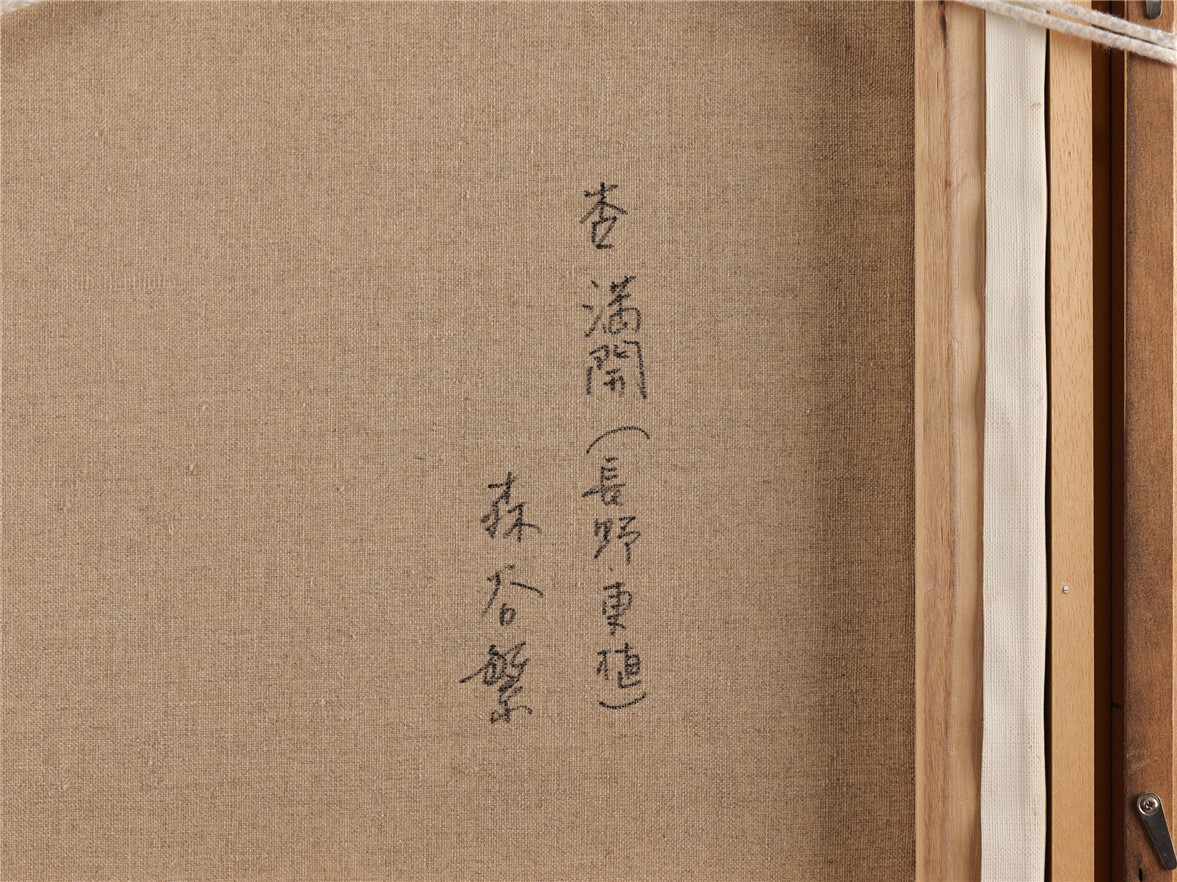 杏 満開（長野・東植）
森谷繁